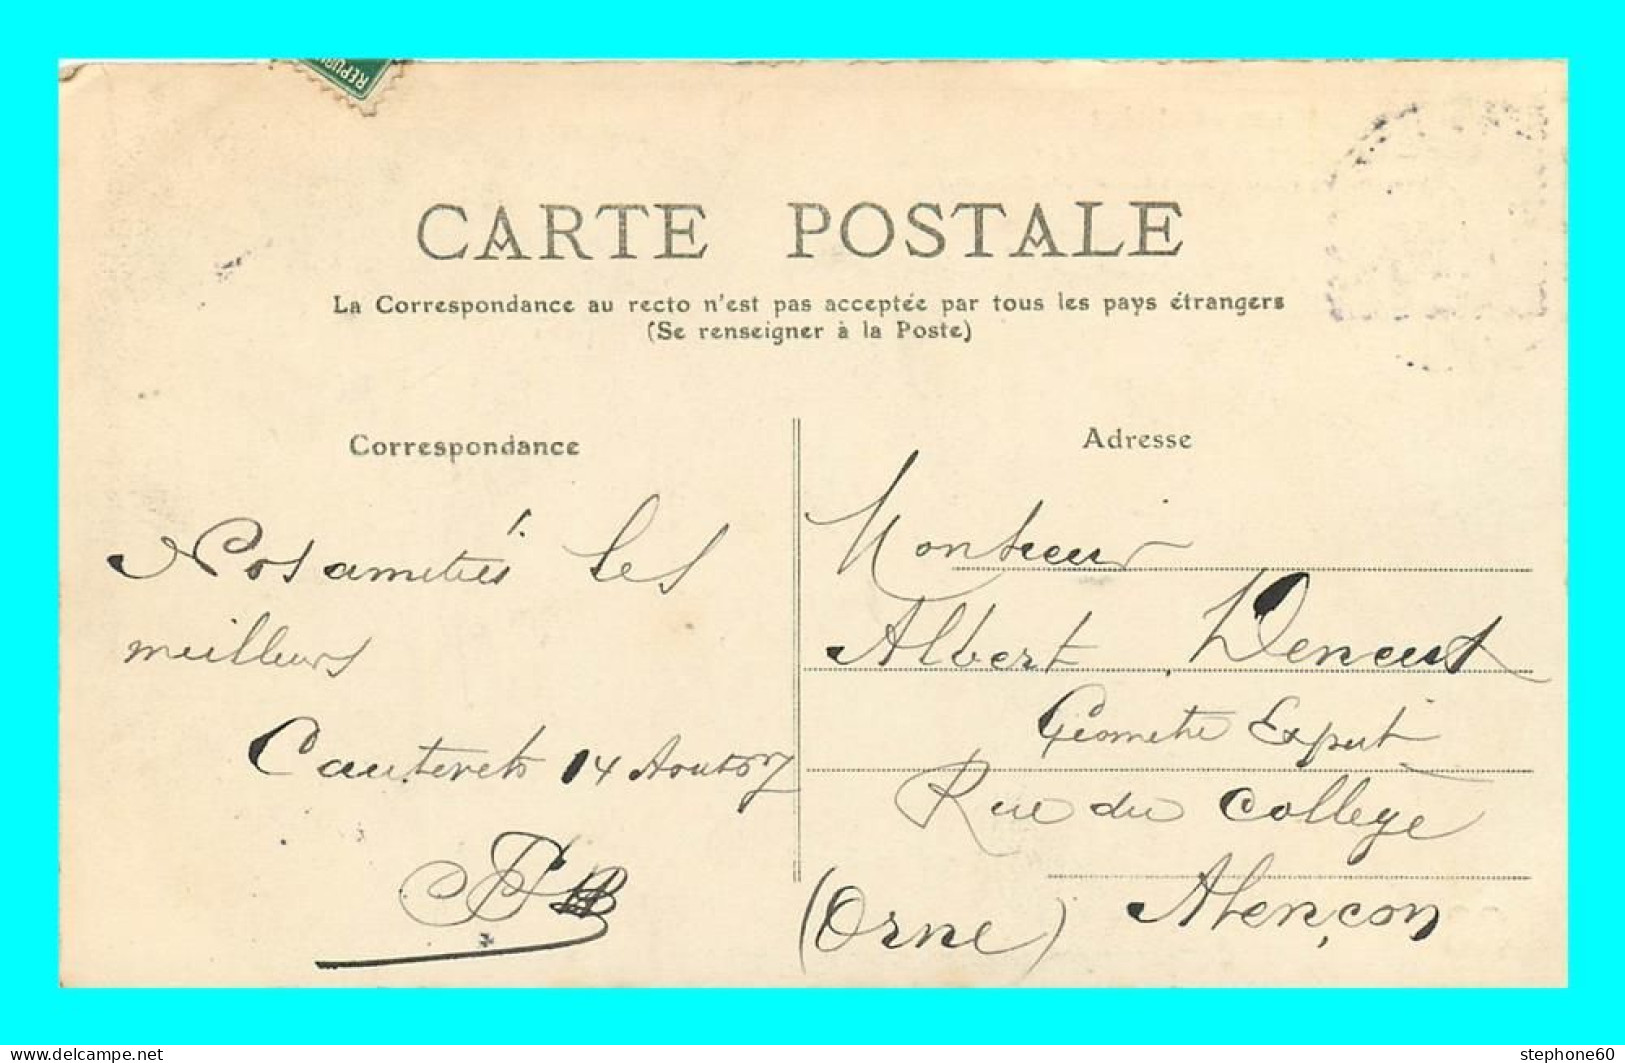 RÉPUBL
CARTE POSTALE
La Correspondance au recto n'est pas acceptée par tous les pays étrangers
(Se renseigner à la Poste)
Correspondance
Nos amitiés les
meilleurs
Cauterets 14 Aout 07
Adresse
Monsieur
Albert
Géometre Expert
Rue du College
Alençon
(Orne)
www.delcampe.net
stephone60